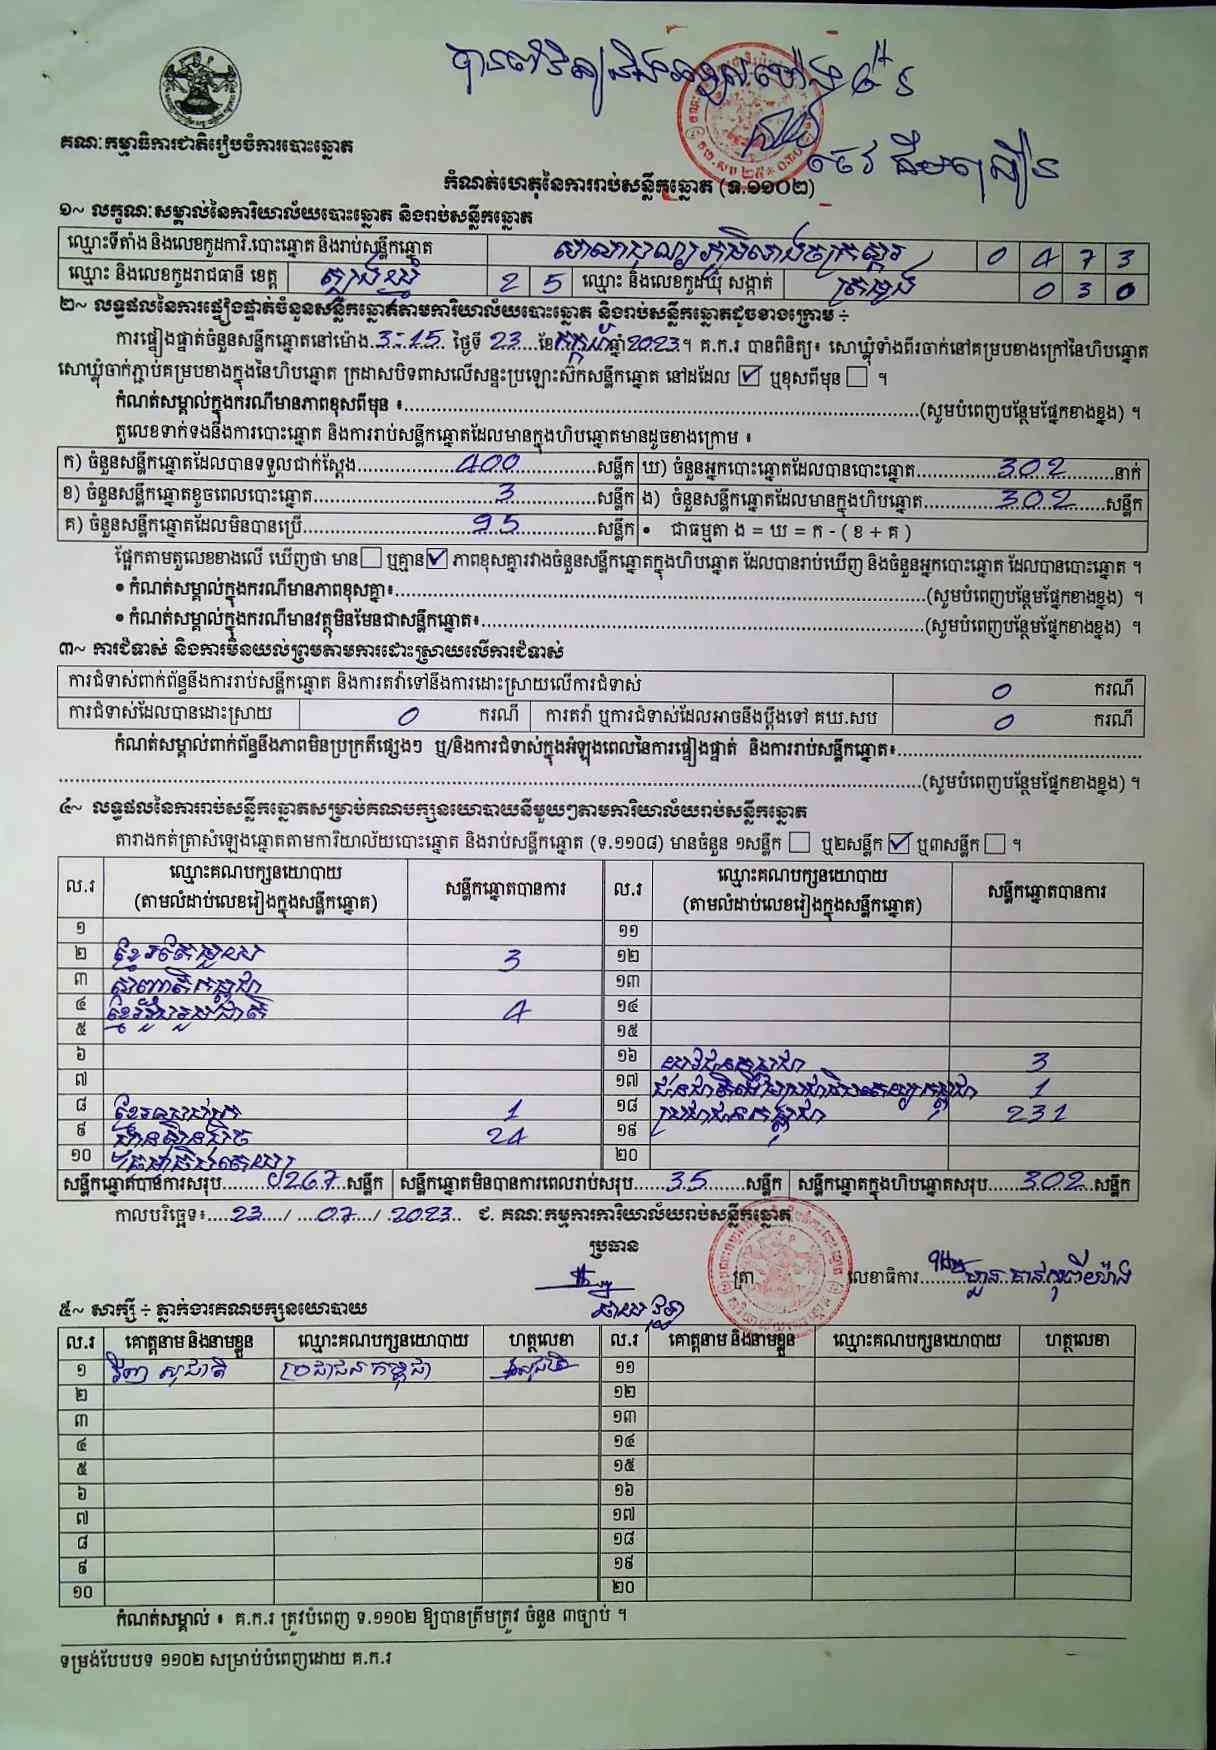 គណៈកម្មាធិការជាតិរៀបចំការបោះឆ្នោត
កំណត់ហេតុនៃការរាប់សន្លឹកឆ្នោត (ទ.១១០២)
១~ លក្ខណៈសម្គាល់នៃការិយាល័យបោះឆ្នោត និងរាប់សន្លឹកឆ្នោត
ឈ្មោះទីតាំង និងលេខកូដការិ.បោះឆ្នោត និងរាប់សន្លឹកឆ្នោត 0 4 7 3
ឈ្មោះ និងលេខកូដរាជធានី ខេត្ត ត្បូងឃ្មុំ 2 5 ឈ្មោះ និងលេខកូដឃុំ សង្កាត់ 0 3 0
២~ លទ្ធផលនៃការផ្ទៀងផ្ទាត់ចំនួនសន្លឹកឆ្នោតតាមការិយាល័យបោះឆ្នោត និងរាប់សន្លឹកឆ្នោតដូចខាងក្រោម ÷
ការផ្ទៀងផ្ទាត់ចំនួនសន្លឹកឆ្នោតនៅម៉ោង 3-15 ថ្ងៃទី 23 ខែ កក្កដា ឆ្នាំ 2023 ។ គ.ក.រ បានពិនិត្យ៖ សោឃ្លុំទាំងពីរចាក់នៅគម្របខាងក្រៅនៃហិបឆ្នោត
សោឃ្លុំចាក់ភ្ជាប់គម្របខាងក្នុងនៃហិបឆ្នោត ក្រដាសបិទពាសលើសន្ទះប្រឡោះស៊កសន្លឹកឆ្នោត នៅដដែល ☑ ឬខុសពីមុន ☐ ។
កំណត់សម្គាល់ក្នុងករណីមានភាពខុសពីមុន ៖ (សូមបំពេញបន្ថែមផ្នែកខាងខ្នង) ។
តួលេខទាក់ទងនឹងការបោះឆ្នោត និងការរាប់សន្លឹកឆ្នោតដែលមានក្នុងហិបឆ្នោតមានដូចខាងក្រោម ៖
ក) ចំនួនសន្លឹកឆ្នោតដែលបានទទួលជាក់ស្តែង 400 សន្លឹក ឃ) ចំនួនអ្នកបោះឆ្នោតដែលបានបោះឆ្នោត 302 នាក់
ខ) ចំនួនសន្លឹកឆ្នោតខូចពេលបោះឆ្នោត 3 សន្លឹក ង) ចំនួនសន្លឹកឆ្នោតដែលមានក្នុងហិបឆ្នោត 302 សន្លឹក
គ) ចំនួនសន្លឹកឆ្នោតដែលមិនបានប្រើ 95 សន្លឹក • ជាធម្មតា ង = ឃ = ក - ( ខ + គ )
ផ្អែកតាមតួលេខខាងលើ ឃើញថា មាន ☐ ឬគ្មាន ☑ ភាពខុសគ្នារវាងចំនួនសន្លឹកឆ្នោតក្នុងហិបឆ្នោត ដែលបានរាប់ឃើញ និងចំនួនអ្នកបោះឆ្នោត ដែលបានបោះឆ្នោត ។
• កំណត់សម្គាល់ក្នុងករណីមានភាពខុសគ្នា៖ (សូមបំពេញបន្ថែមផ្នែកខាងខ្នង) ។
• កំណត់សម្គាល់ក្នុងករណីមានវត្ថុមិនមែនជាសន្លឹកឆ្នោត៖ (សូមបំពេញបន្ថែមផ្នែកខាងខ្នង) ។
៣~ ការជំទាស់ និងការមិនយល់ព្រមតាមការដោះស្រាយលើការជំទាស់
ការជំទាស់ពាក់ព័ន្ធនឹងការរាប់សន្លឹកឆ្នោត និងការតវ៉ាទៅនឹងការដោះស្រាយលើការជំទាស់ 0 ករណី
ការជំទាស់ដែលបានដោះស្រាយ 0 ករណី ការតវ៉ា ឬការជំទាស់ដែលអាចនឹងប្តឹងទៅ គឃ.សប 0 ករណី
កំណត់សម្គាល់ពាក់ព័ន្ធនឹងភាពមិនប្រក្រតីផ្សេងៗ ឬ/និងការជំទាស់ក្នុងអំឡុងពេលនៃការផ្ទៀងផ្ទាត់ និងការរាប់សន្លឹកឆ្នោត៖
(សូមបំពេញបន្ថែមផ្នែកខាងខ្នង) ។
៤~ លទ្ធផលនៃការរាប់សន្លឹកឆ្នោតសម្រាប់គណបក្សនយោបាយនីមួយៗតាមការិយាល័យរាប់សន្លឹកឆ្នោត
តារាងកត់ត្រាសំឡេងឆ្នោតតាមការិយាល័យបោះឆ្នោត និងរាប់សន្លឹកឆ្នោត (ទ.១១០៨) មានចំនួន ១សន្លឹក ☐ ឬ២សន្លឹក ☑ ឬ៣សន្លឹក ☐ ។
ល.រ ឈ្មោះគណបក្សនយោបាយ (តាមលំដាប់លេខរៀងក្នុងសន្លឹកឆ្នោត) សន្លឹកឆ្នោតបានការ ល.រ ឈ្មោះគណបក្សនយោបាយ (តាមលំដាប់លេខរៀងក្នុងសន្លឹកឆ្នោត) សន្លឹកឆ្នោតបានការ
១ ១១
២ 3 ១២
៣ ១៣
៤ ខ្មែររួបរួមជាតិ 4 ១៤
៥ ១៥
៦ ១៦ 3
៧ ១៧ 1
៨ 1 ១៨ ប្រជាជនកម្ពុជា 231
៩ 24 ១៩
១០ ២០
សន្លឹកឆ្នោតបានការសរុប 267 សន្លឹក សន្លឹកឆ្នោតមិនបានការពេលរាប់សរុប 35 សន្លឹក សន្លឹកឆ្នោតក្នុងហិបឆ្នោតសរុប 302 សន្លឹក
កាលបរិច្ឆេទ៖ 23 / 07 / 2023 ជ. គណៈកម្មការការិយាល័យរាប់សន្លឹកឆ្នោត
ប្រធាន
ត្រា លេខាធិការ
៥~ សាក្សី ÷ ភ្នាក់ងារគណបក្សនយោបាយ
ល.រ គោត្តនាម និងនាមខ្លួន ឈ្មោះគណបក្សនយោបាយ ហត្ថលេខា ល.រ គោត្តនាម និងនាមខ្លួន ឈ្មោះគណបក្សនយោបាយ ហត្ថលេខា
១ សុជាតិ ប្រជាជនកម្ពុជា ១១
២ ១២
៣ ១៣
៤ ១៤
៥ ១៥
៦ ១៦
៧ ១៧
៨ ១៨
៩ ១៩
១០ ២០
កំណត់សម្គាល់ ៖ គ.ក.រ ត្រូវបំពេញ ទ.១១០២ ឱ្យបានត្រឹមត្រូវ ចំនួន ៣ច្បាប់ ។
ទម្រង់បែបបទ ១១០២ សម្រាប់បំពេញដោយ គ.ក.រ